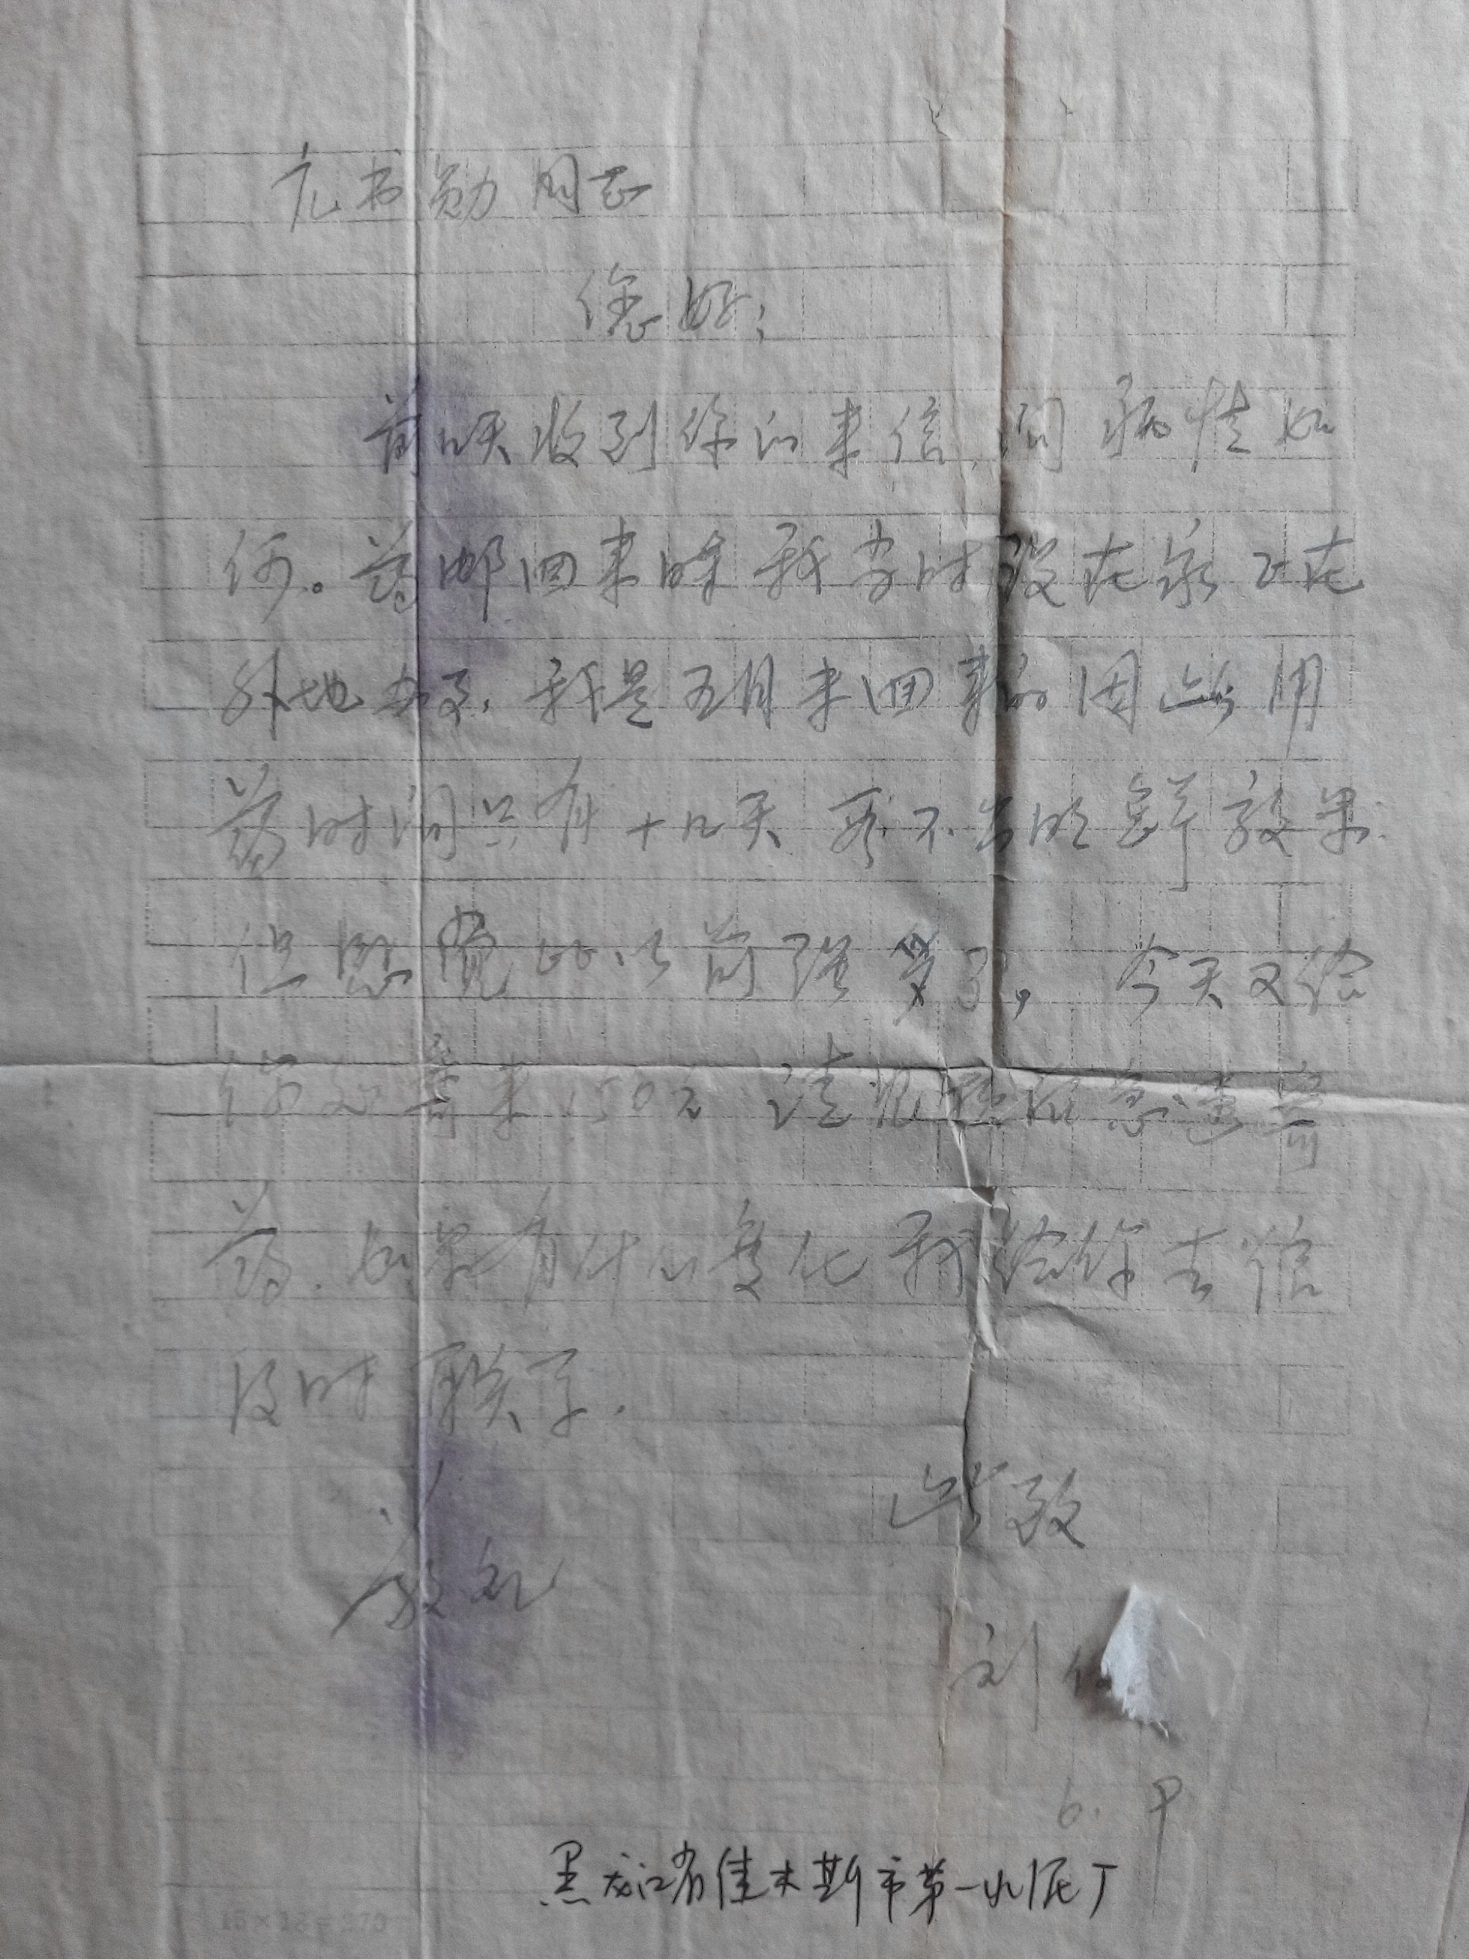 亢书勋同志
您好：
前几天收到你的来信，问病情如
何。药邮回来时我当时没在家正在
外地办事，我是五月末回来的因此用
药时间只有十几天看不出明显效果.
但感觉比以前强多了，今天又给
你处寄来150元请收到后急速寄
药.如果有什么变化我给你去信
及时联系.
此致
敬礼
刘
6. 9
黑龙江省佳木斯市第一水泥厂
15×18=270